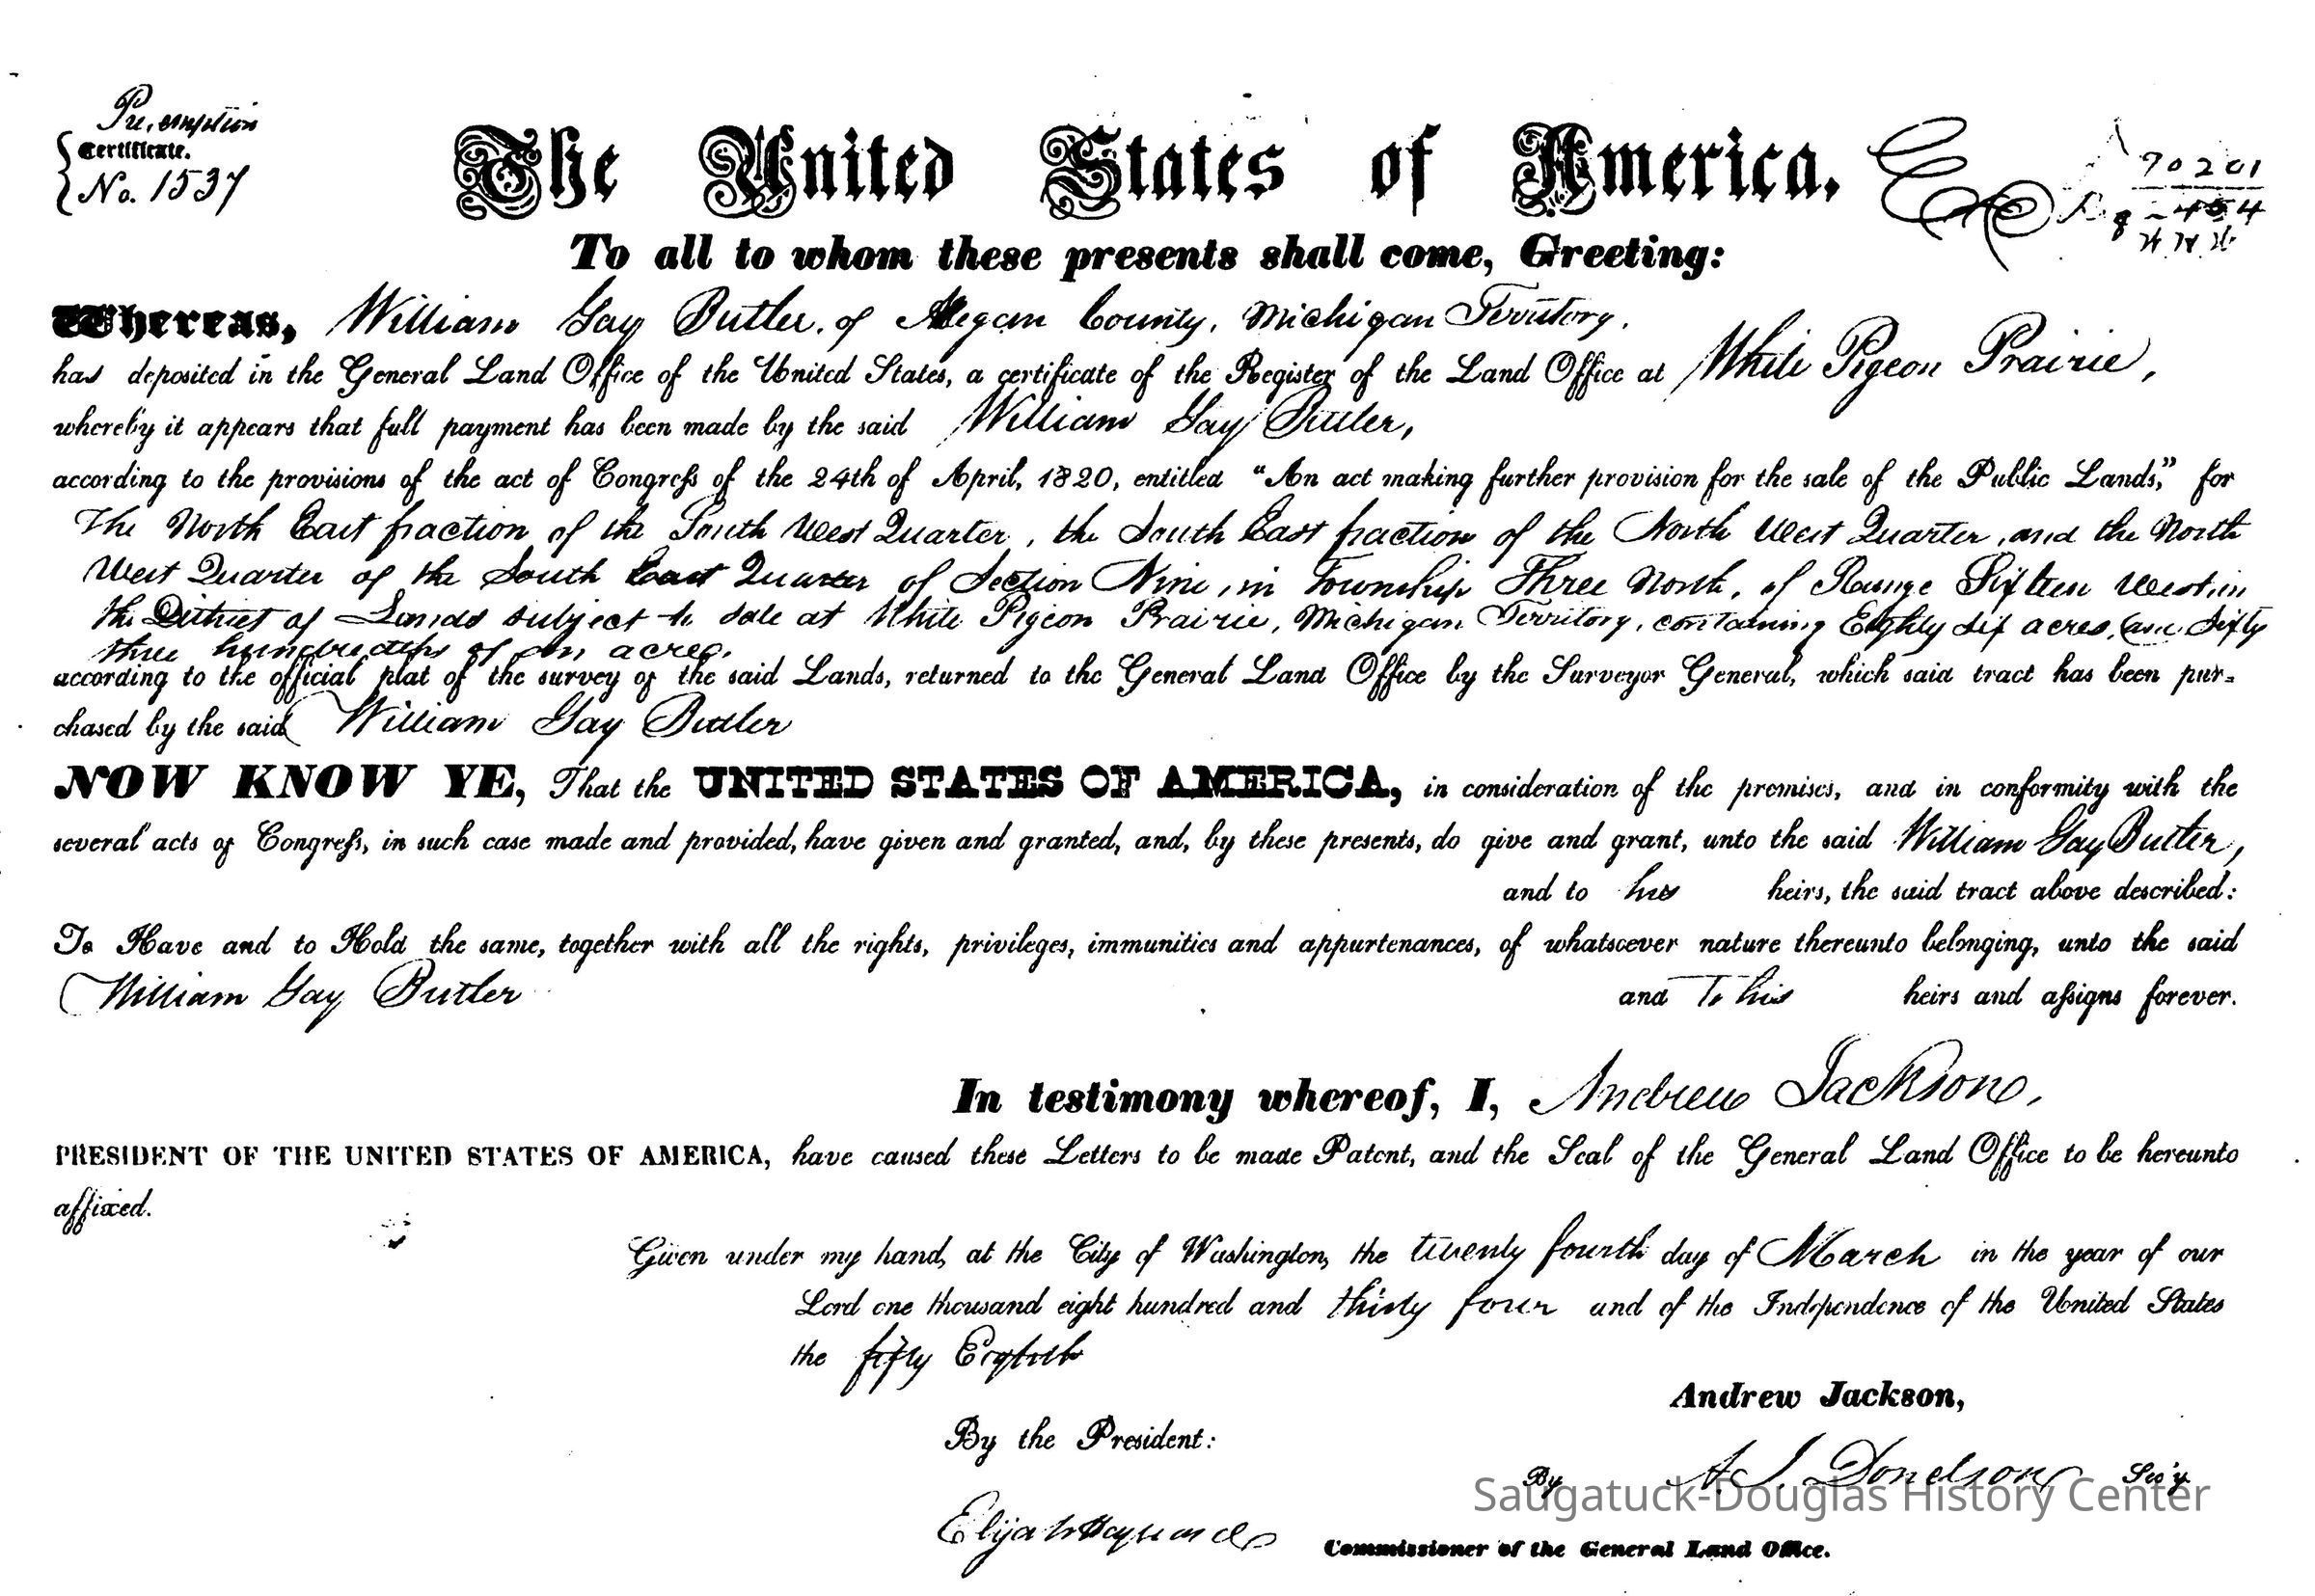 Pre-emption
Certificate.
No. 1537
The United States of America.
90201
To all to whom these presents shall come, Greeting:
Whereas, William Gay Butler, of Allegan County, Michigan Territory,
has deposited in the General Land Office of the United States, a certificate of the Register of the Land Office at White Pigeon Prairie,
whereby it appears that full payment has been made by the said William Gay Butler,
according to the provisions of the act of Congress of the 24th of April, 1820, entitled “An act making further provision for the sale of the Public Lands,” for
The North East fraction of the South West Quarter, the South East fraction of the North West Quarter, and the North
West Quarter of the South East Quarter of Section Nine, in Township Three North, of Range Sixteen West in
the District of Lands subject to sale at White Pigeon Prairie, Michigan Territory, containing Eighty six acres, and Sixty
three hundredths of an acre.
according to the official plat of the survey of the said Lands, returned to the General Land Office by the Surveyor General, which said tract has been pur-
chased by the said William Gay Butler
NOW KNOW YE, That the UNITED STATES OF AMERICA, in consideration of the premises, and in conformity with the
several acts of Congress, in such case made and provided, have given and granted, and, by these presents, do give and grant, unto the said William Gay Butler,
and to his heirs, the said tract above described:
To Have and to Hold the same, together with all the rights, privileges, immunities and appurtenances, of whatsoever nature thereunto belonging, unto the said
William Gay Butler and To his heirs and assigns forever.
In testimony whereof, I, Andrew Jackson,
PRESIDENT OF THE UNITED STATES OF AMERICA, have caused these Letters to be made Patent, and the Seal of the General Land Office to be hereunto
affixed.
Given under my hand, at the City of Washington, the twenty fourth day of March in the year of our
Lord one thousand eight hundred and thirty four and of the Independence of the United States
the fifty Eighth
Andrew Jackson,
By the President:
By A. J. Donelson Sec'y
Saugatuck-Douglas History Center
Elijah Hayward
Commissioner of the General Land Office.